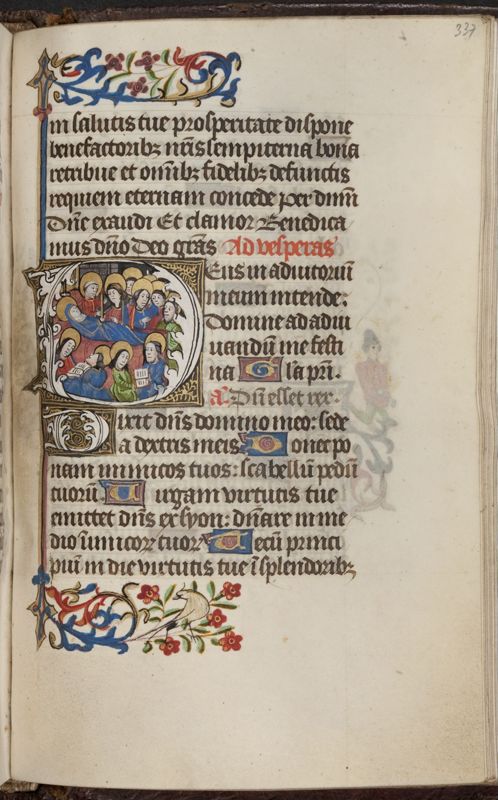 337
in salutis tue prosperitate dispone
benefactoribz nr̄is sempiterna bona
retribue et om̄ibz fidelibz defunctis
requiem eternam concede per dn̄m
Dn̄e exaudi Et clamor Benedica
mus dn̄o Deo gr̄as Ad vesperas
Eus in adiutoriū
meum intende:
Domine ad adiu
uandū me festi
na G la pr̄i.
a. Dū esset rex.
Dixit dn̄s domino meo: sede
a dextris meis Donec po
nam inimicos tuos: scabellū pedū
tuorū Uirgam uirtutis tue
emittet dn̄s ex syon: dn̄are in me
dio īimicorꝝ tuorꝝ Tecū princi
piū in die uirtutis tue ī splendoribz